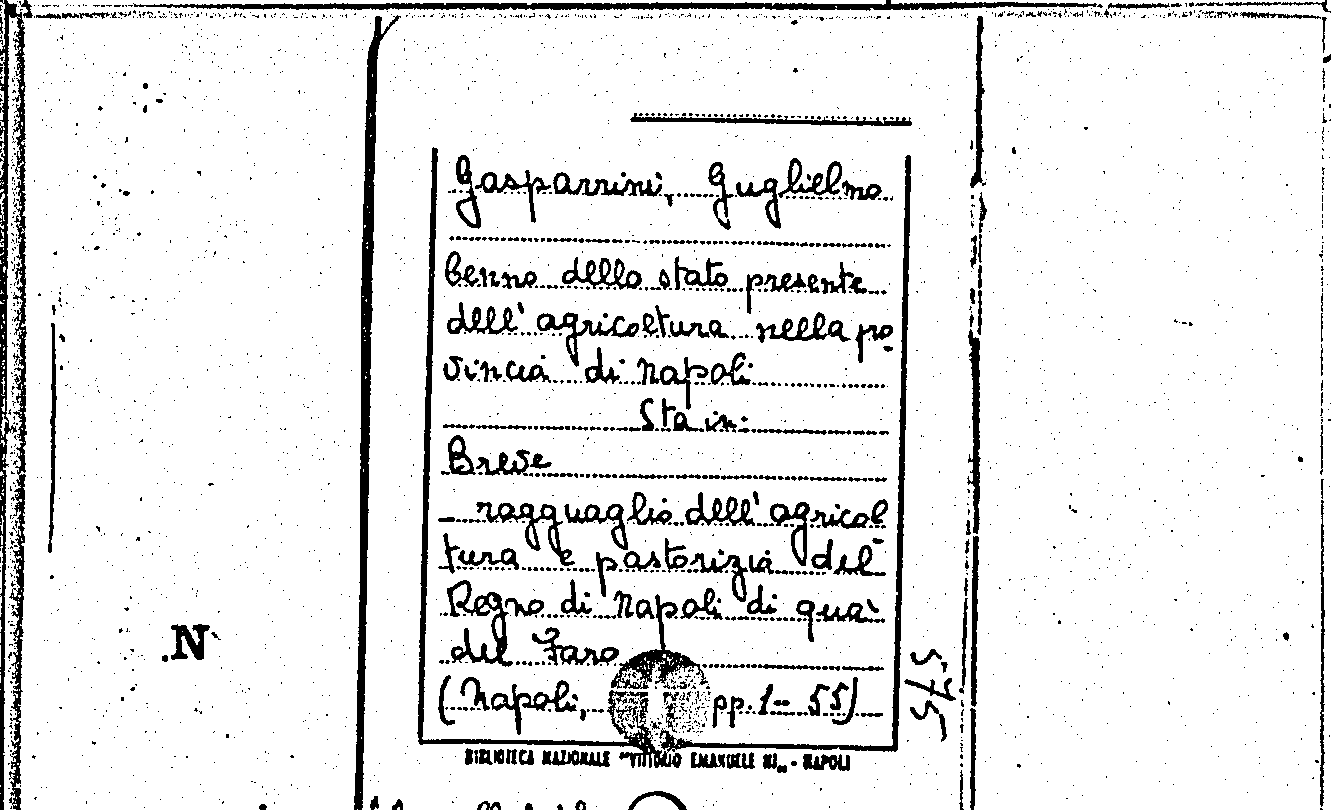 Gasparrini, Guglielmo
Cenno dello stato presente
dell' agricoltura nella pro
vincia di Napoli
Sta in:
Breve
ragguaglio dell' agricol
tura e pastorizia del
Regno di Napoli di quà
del Faro
(Napoli, pp. 1-55)
BIBLIOTECA NAZIONALE "VITTORIO EMANUELE III" - NAPOLI
N